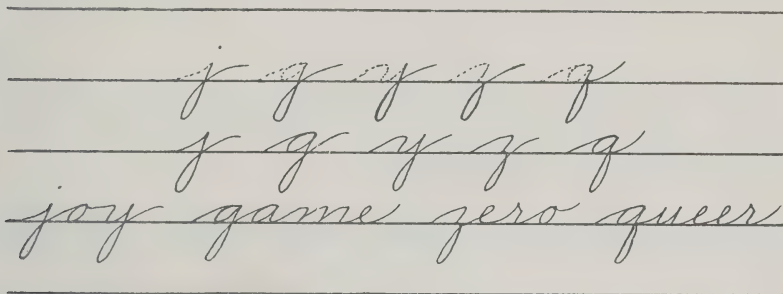 j g y z q
j g y z q
joy game zero queer